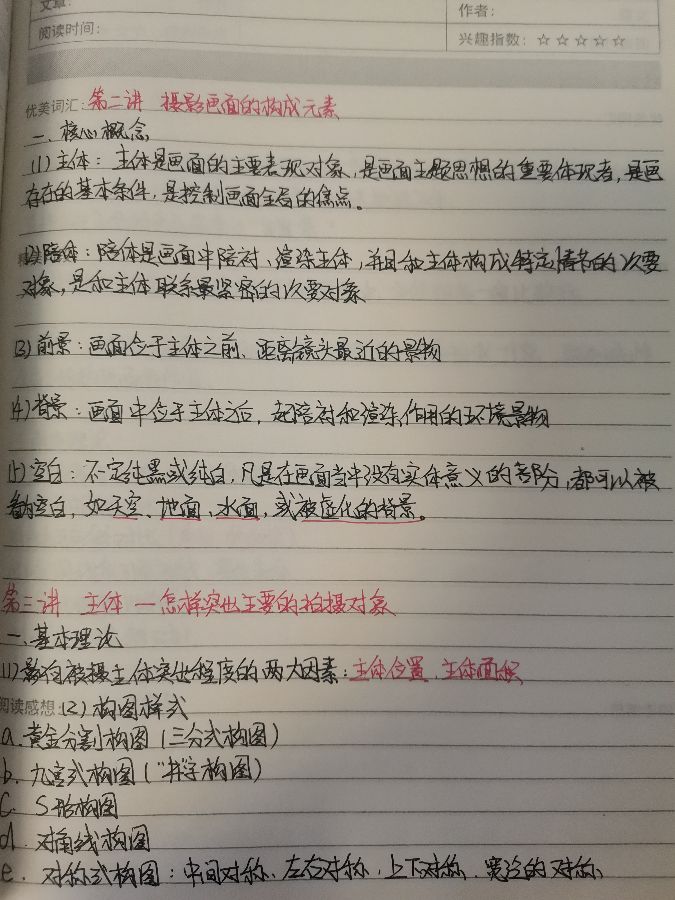 文章：
作者：
阅读时间：
兴趣指数：☆☆☆☆☆
优美词汇：第二讲 摄影画面的构成元素
一、核心概念
(1)主体：主体是画面的主要表现对象，是画面主题思想的重要体现者，是画
存在的基本条件，是控制画面全局的焦点。
(2)陪体：陪体是画面中陪衬、渲染主体，并且和主体构成特定情节的次要
对象，是和主体联系最紧密的次要对象
(3)前景：画面位于主体之前、距离镜头最近的景物
(4)背景：画面中位于主体之后，起陪衬和渲染作用的环境景物
(5)空白：不一定纯黑或纯白，凡是在画面当中没有实体意义的部分，都可以被
看的空白，如天空、地面、水面，或被虚化的背景。
第三讲 主体 — 怎样突出主要的拍摄对象
一、基本理论
(1)影响被摄主体突出程度的两大因素：主体位置、主体面积
阅读感想：(2)构图样式
a.黄金分割构图（三分式构图）
b.九宫式构图（"井"字构图）
C. S形构图
d.对角线构图
e.对称式构图：中间对称、左右对称、上下对称、宽泛的对称、